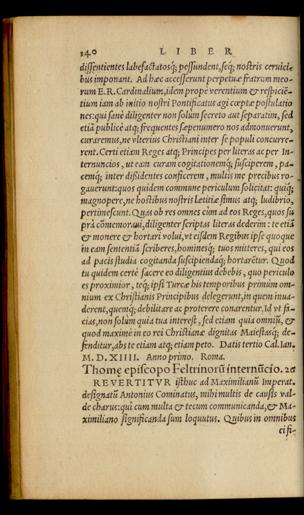 140 LIBER
dissentientes labefactatosq; pessundent, seq; nostris cervici-
bus imponant. Ad hæc accesserunt perpetuæ fratrum meo-
rum E.R. Cardinalium, idem prope verentium & respiciẽ-
tium iam ab initio nostri Pontificatus agi cœptæ postulatio
nes: qui sanè diligenter non solùm secreto aut separatim, sed
etiã publicè atq; frequentes sæpenumero nos admonuerunt,
curaremus, ne vlterius Christiani inter se populi concurre-
rent. Certi etiam Reges atq; Principes per literas ac per In-
ternuncios, ut eam curam cogitationemq; susciperem, pa-
cemq́; inter dissidentes conficerem, multis me precibus ro-
gauerunt: quos quidem commune periculum solicitat: quiq́;
magnopere, ne hostibus nostris Lætitiæ simus atq; ludibrio,
pertinescunt. Quas ob res omnes cùm ad eos Reges, quos su
prà cõmemoraui, diligenter scriptas literas dederim: te etiã
& monere & hortari volui, vt eisdem Regibus ipse quoque
in eam sententiã scriberes, hominesq́; tuos mitteres, qui eos
ad pacis studia cogitanda suscipiendaq́; hortarẽtur. Quod
tu quidem certè facere eo diligentius debebis, quo periculo
es proximior, teq́; ipsi Turcæ his temporibus primùm om-
nium ex Christianis Principibus delegerunt, in quem inua-
derent, quemq́; debilitare ac proterere conarentur. Id vt fa-
cias, non solùm quia tua interest, sed etiam quia omniũ, &
quod maximè in eo rei Christianæ dignitas Maiestasq́; de-
fenditur, abs te etiam atq; etiam peto. Datis tertio Cal. Ian.
M. D. XIIII. Anno primo. Roma.
Thomę episcopo Feltrinorũ internũcio. 20
REVERTITVR isthuc ad Maximilianũ Imperat.
designatũ Antonius Cominatus, mihi multis de causis val-
de charus: qui cùm multa & tecum communicanda, & Ma-
ximiliano significanda sum loquutus. Quibus in omnibus
ei fi-